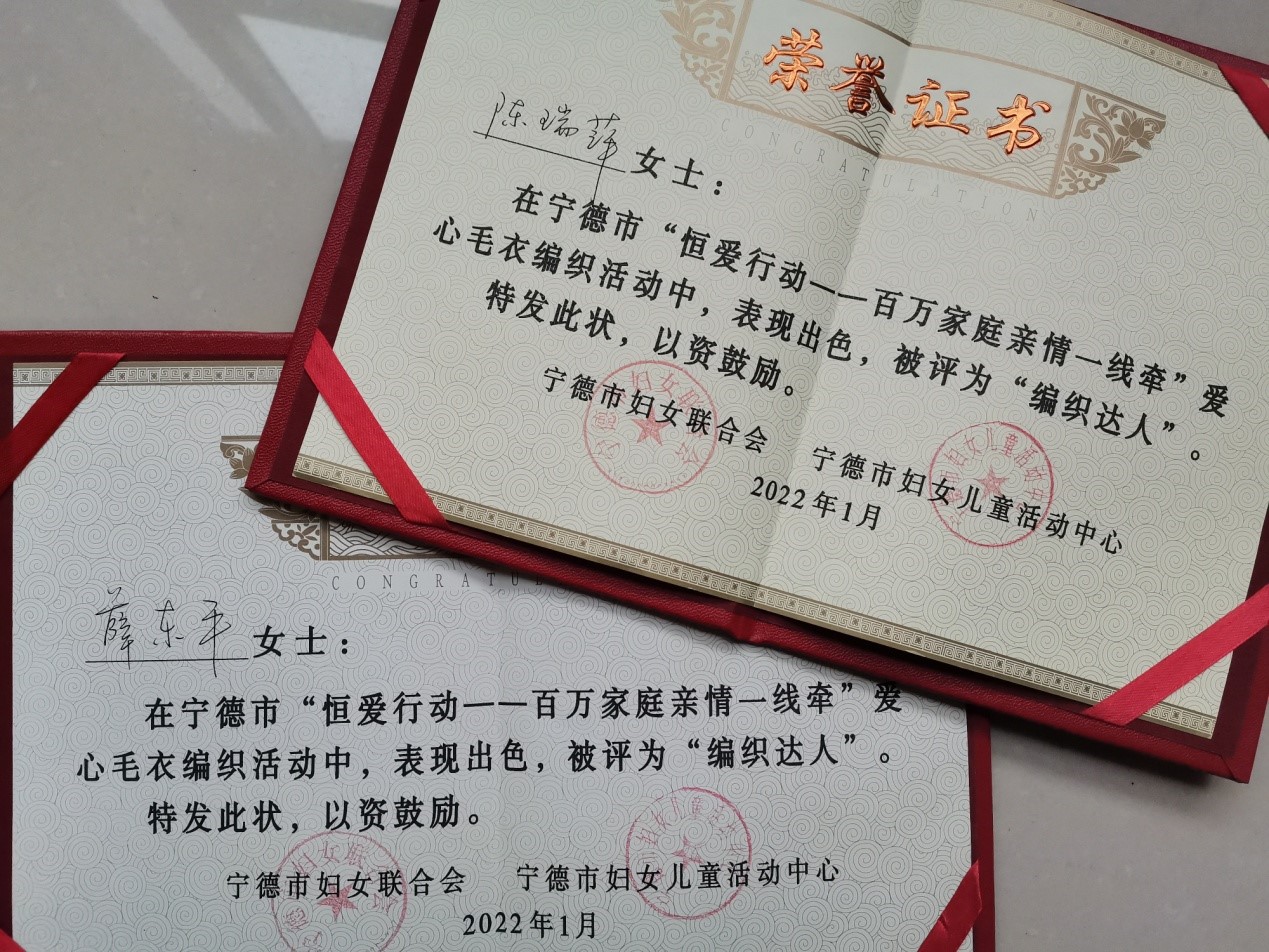 荣誉证书
CONGRATULATION
陈瑞萍女士：
在宁德市“恒爱行动——百万家庭亲情一线牵”爱
心毛衣编织活动中，表现出色，被评为“编织达人”。
特发此状，以资鼓励。
宁德市妇女联合会 宁德市妇女儿童活动中心
2022年1月
CONGRATUL
薛东平女士：
在宁德市“恒爱行动——百万家庭亲情一线牵”爱
心毛衣编织活动中，表现出色，被评为“编织达人”。
特发此状，以资鼓励。
宁德市妇女联合会 宁德市妇女儿童活动中心
2022年1月